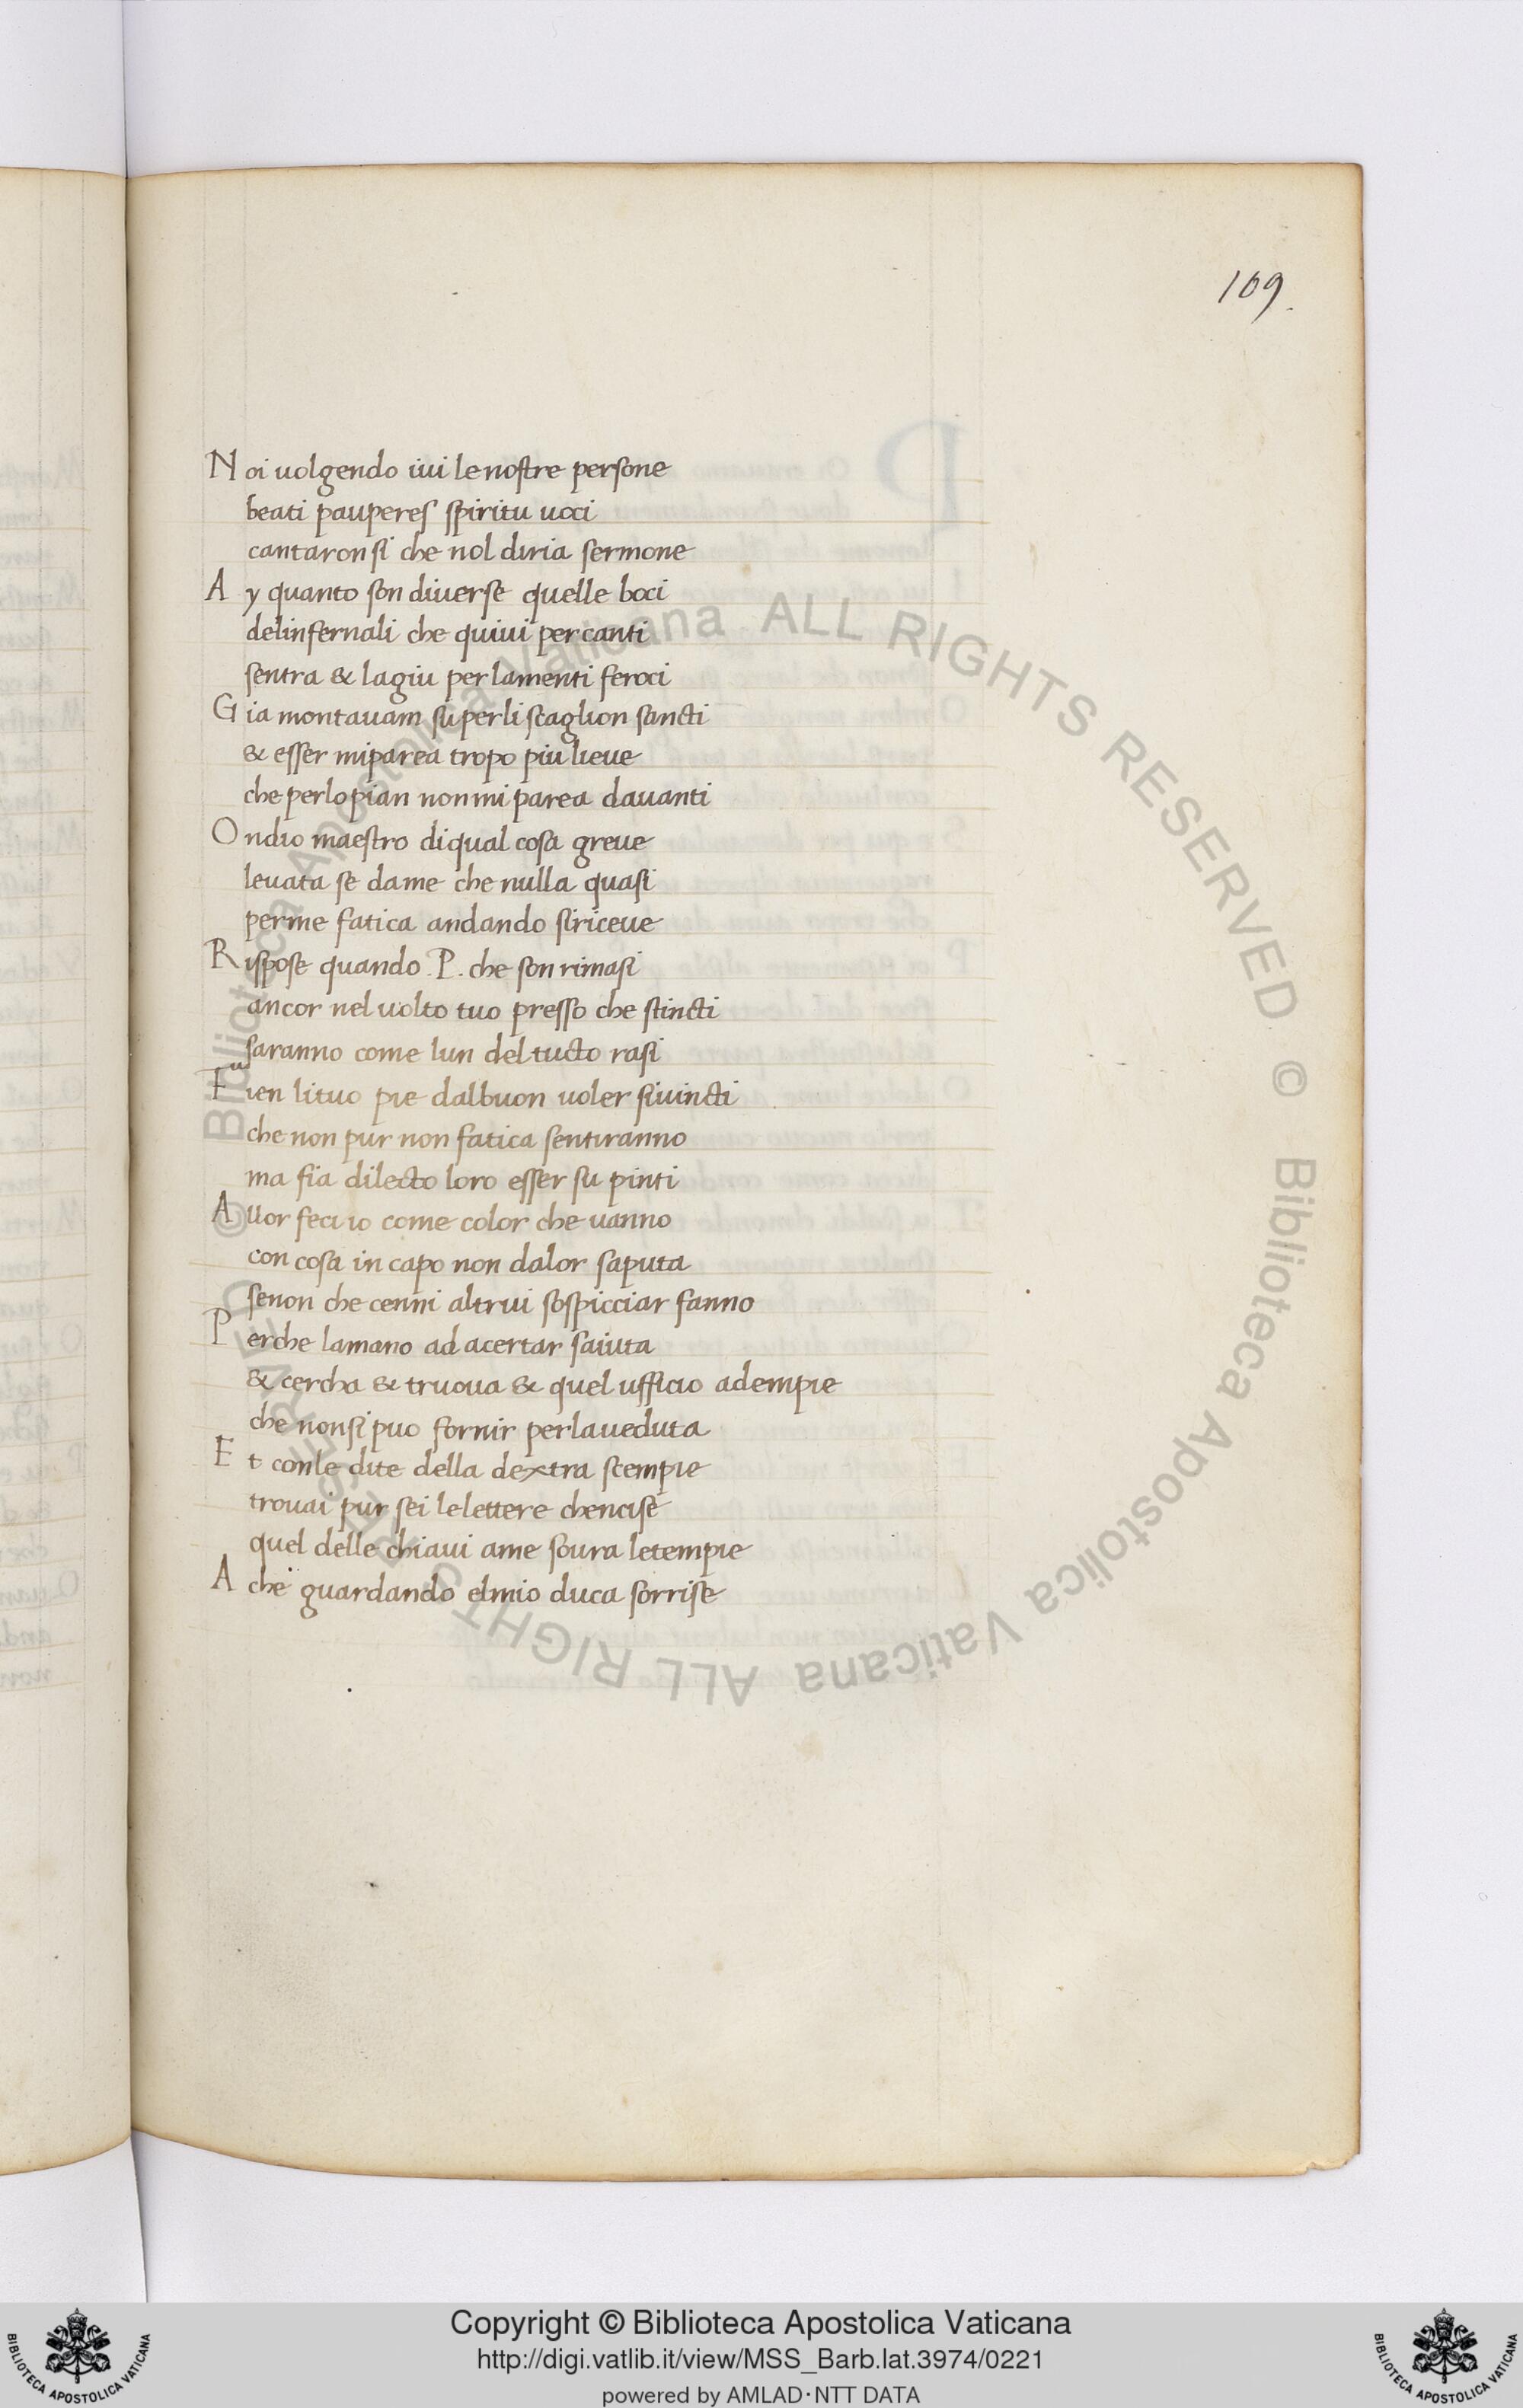 109.
Noi uolgendo iui lenostre persone
beati pauperes spiritu uoci
cantaron si che nol diria sermone
Ay quanto son diuerse quelle boci
delinfernali che quiui per canti
sentra & lagiu per lamenti feroci
Gia montauam su perli scaglion sancti
& esser miparea tropo piu lieue
che perlo pian non mi parea dauanti
Ondio maestro diqual cosa greue
leuata se dame che nulla quasi
perme fatica andando siriceue
Rispose quando .P. che son rimasi
ancor nel uolto tuo presso che stincti
saranno come lun del tucto rasi
Fien lituo pie dalbuon uoler siuincti
che non pur non fatica sentiranno
ma fia dilecto loro esser su pinti
Allor feci io come color che uanno
con cosa in capo non dalor saputa
senon che cenni altrui sospicciar fanno
Perche lamano ad acertar saiuta
& cercha & truoua & quel ufficio adempie
che nonsi puo fornir perlaueduta
Et conle dite della dextra scempie
trouai pur sei lelettere chencise
quel delle chiaui ame soura letempie
A che guardando elmio duca sorrise
© Biblioteca Apostolica Vaticana ALL RIGHTS RESERVED
© Biblioteca Apostolica Vaticana ALL RIGHTS RESERVED
Copyright © Biblioteca Apostolica Vaticana
http://digi.vatlib.it/view/MSS_Barb.lat.3974/0221
powered by AMLAD·NTT DATA
BIBLIOTECA APOSTOLICA VATICANA
BIBLIOTECA APOSTOLICA VATICANA